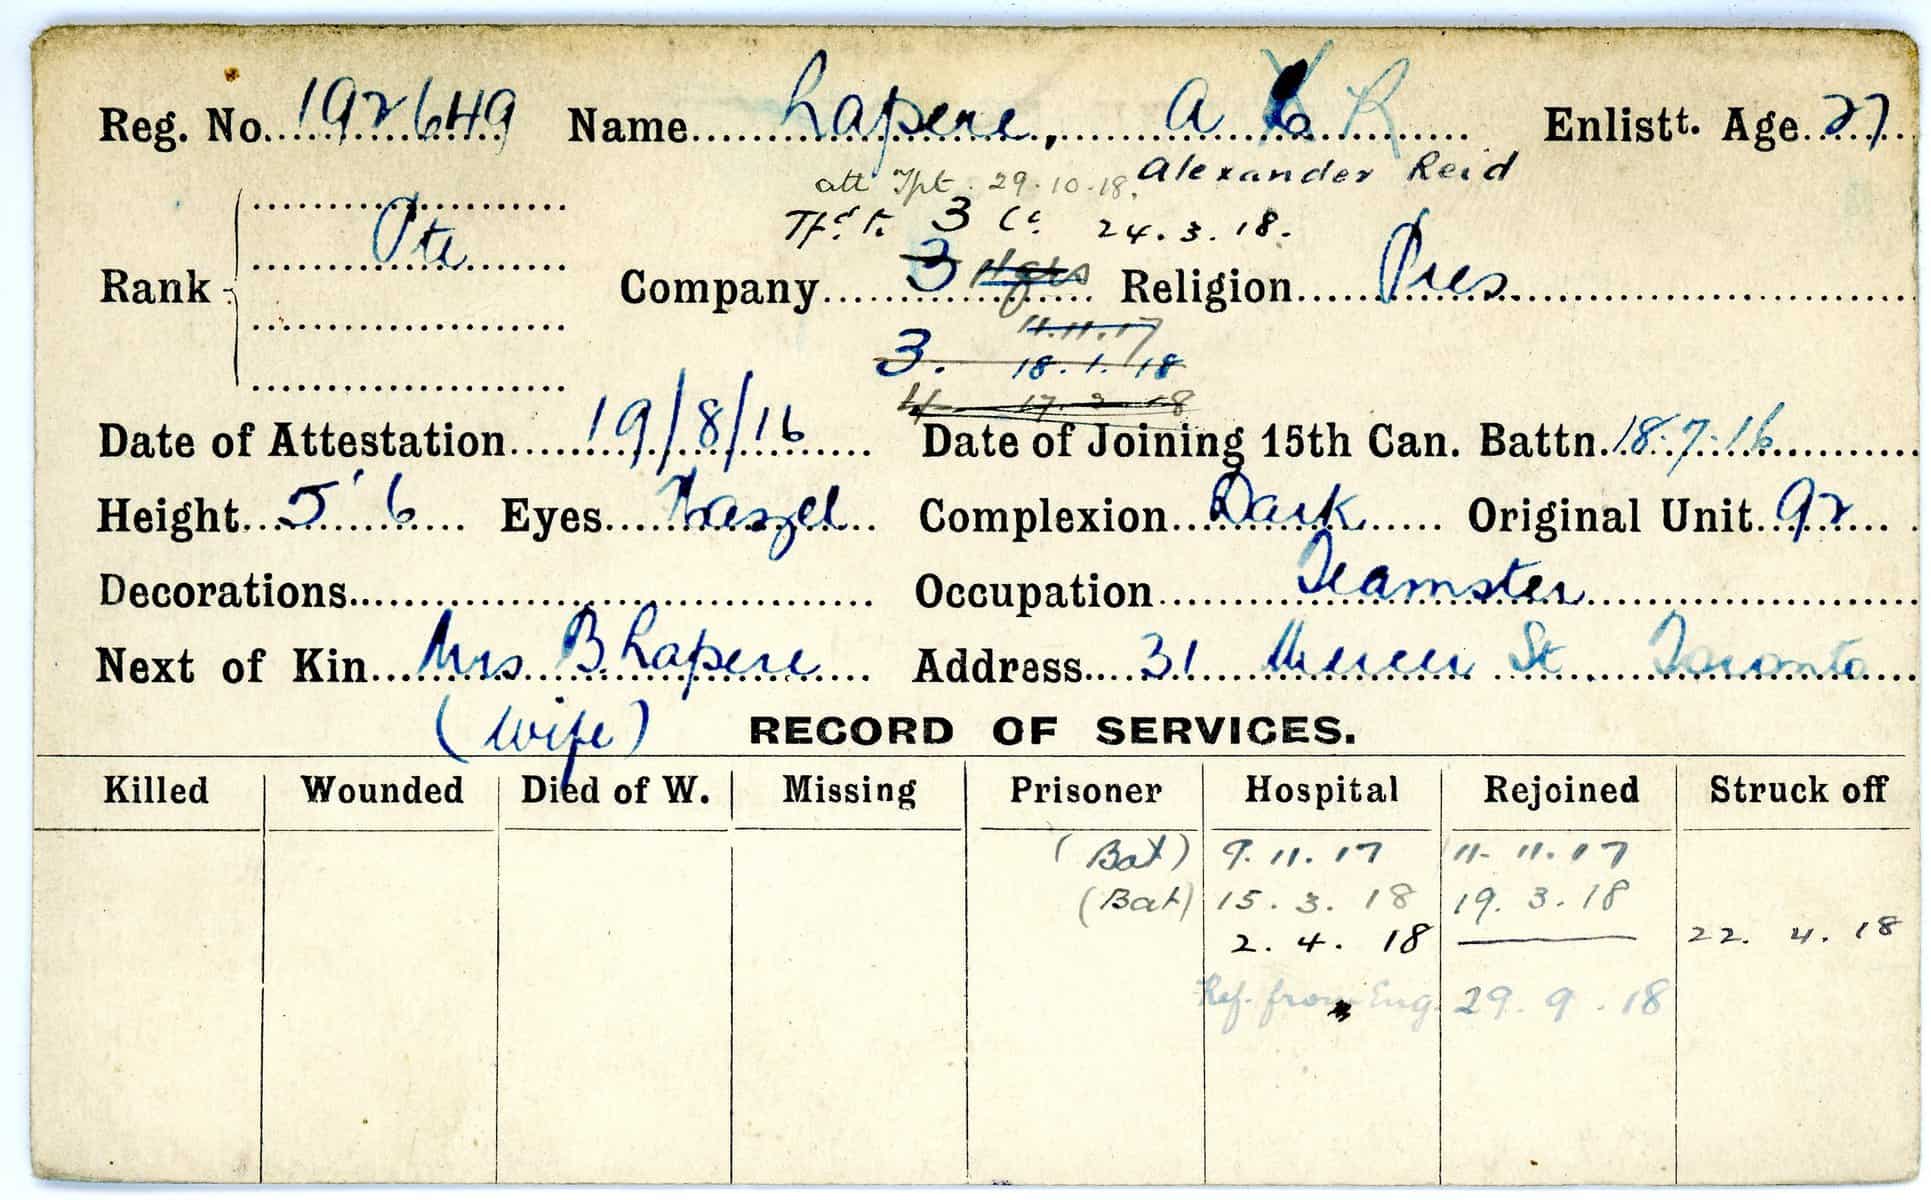 Reg. No. 192649 Name Lapere, A R Enlistt. Age 27
att Tpt. 29.10.18. Alexander Reid
Tfd. to 3 Co. 24.3.18.
Rank Pte Company 3 Hqrs Religion Pres.
11.11.17
3. 18.1.18
4 17.3.18
Date of Attestation 19/8/16 Date of Joining 15th Can. Battn. 18.7.16
Height 5' 6 Eyes Hazel Complexion Dark Original Unit 92
Decorations Occupation Teamster
Next of Kin Mrs. B. Lapere Address 31 Mercer St. Toronto
(wife) RECORD OF SERVICES.
Killed Wounded Died of W. Missing Prisoner Hospital Rejoined Struck off
(Bat) 9.11.17 11.11.17
(Bat) 15.3.18 19.3.18
2.4.18 — 22.4.18
Ref. from Eng. 29.9.18